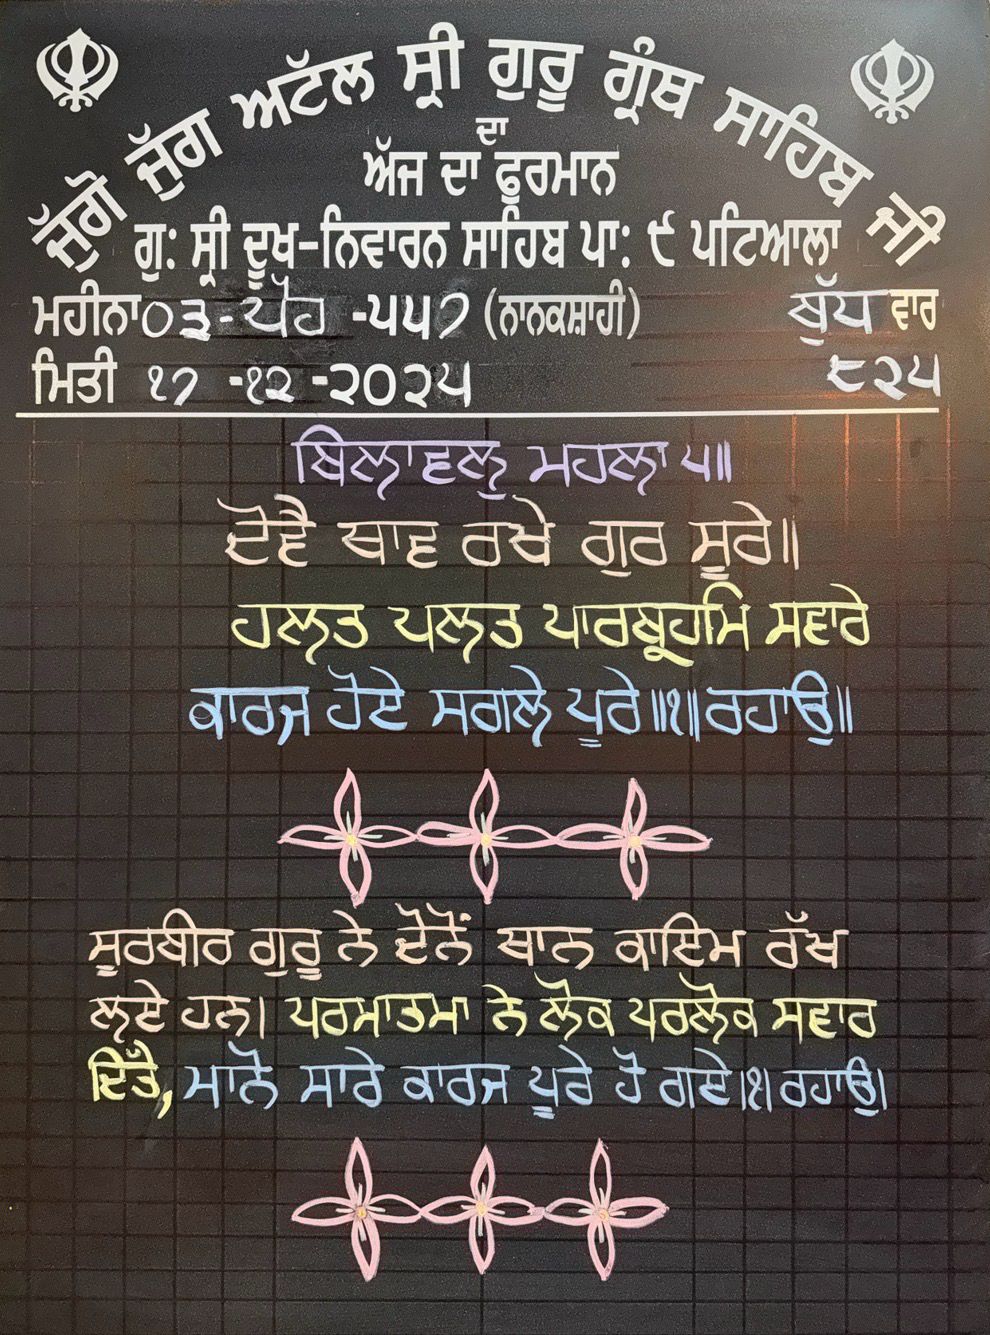 ਜੁੱਗੋ ਜੁੱਗ ਅਟੱਲ ਸ੍ਰੀ ਗੁਰੂ ਗ੍ਰੰਥ ਸਾਹਿਬ ਜੀ
ਦਾ
ਅੱਜ ਦਾ ਫੁਰਮਾਨ
ਗੁ: ਸ੍ਰੀ ਦੂਖ-ਨਿਵਾਰਨ ਸਾਹਿਬ ਪਾ: ੯ ਪਟਿਆਲਾ
ਮਹੀਨਾ ੦੩-ਪੋਹ -੫੫੭ (ਨਾਨਕਸ਼ਾਹੀ) ਬੁੱਧ ਵਾਰ
ਮਿਤੀ ੧੭ -੧੨ -੨੦੨੫ ੮੨੫
ਬਿਲਾਵਲੁ ਮਹਲਾ ੫॥
ਦੋਵੈ ਥਾਵ ਰਖੇ ਗੁਰ ਸੂਰੇ॥
ਹਲਤ ਪਲਤ ਪਾਰਬ੍ਰਹਮਿ ਸਵਾਰੇ
ਕਾਰਜ ਹੋਏ ਸਗਲੇ ਪੂਰੇ॥੧॥ਰਹਾਉ॥
ਸੂਰਬੀਰ ਗੁਰੂ ਨੇ ਦੋਨੋਂ ਥਾਨ ਕਾਇਮ ਰੱਖ
ਲਏ ਹਨ। ਪਰਮਾਤਮਾ ਨੇ ਲੋਕ ਪਰਲੋਕ ਸਵਾਰ
ਦਿੱਤੇ, ਮਾਨੋ ਸਾਰੇ ਕਾਰਜ ਪੂਰੇ ਹੋ ਗਏ।੧। ਰਹਾਉ।